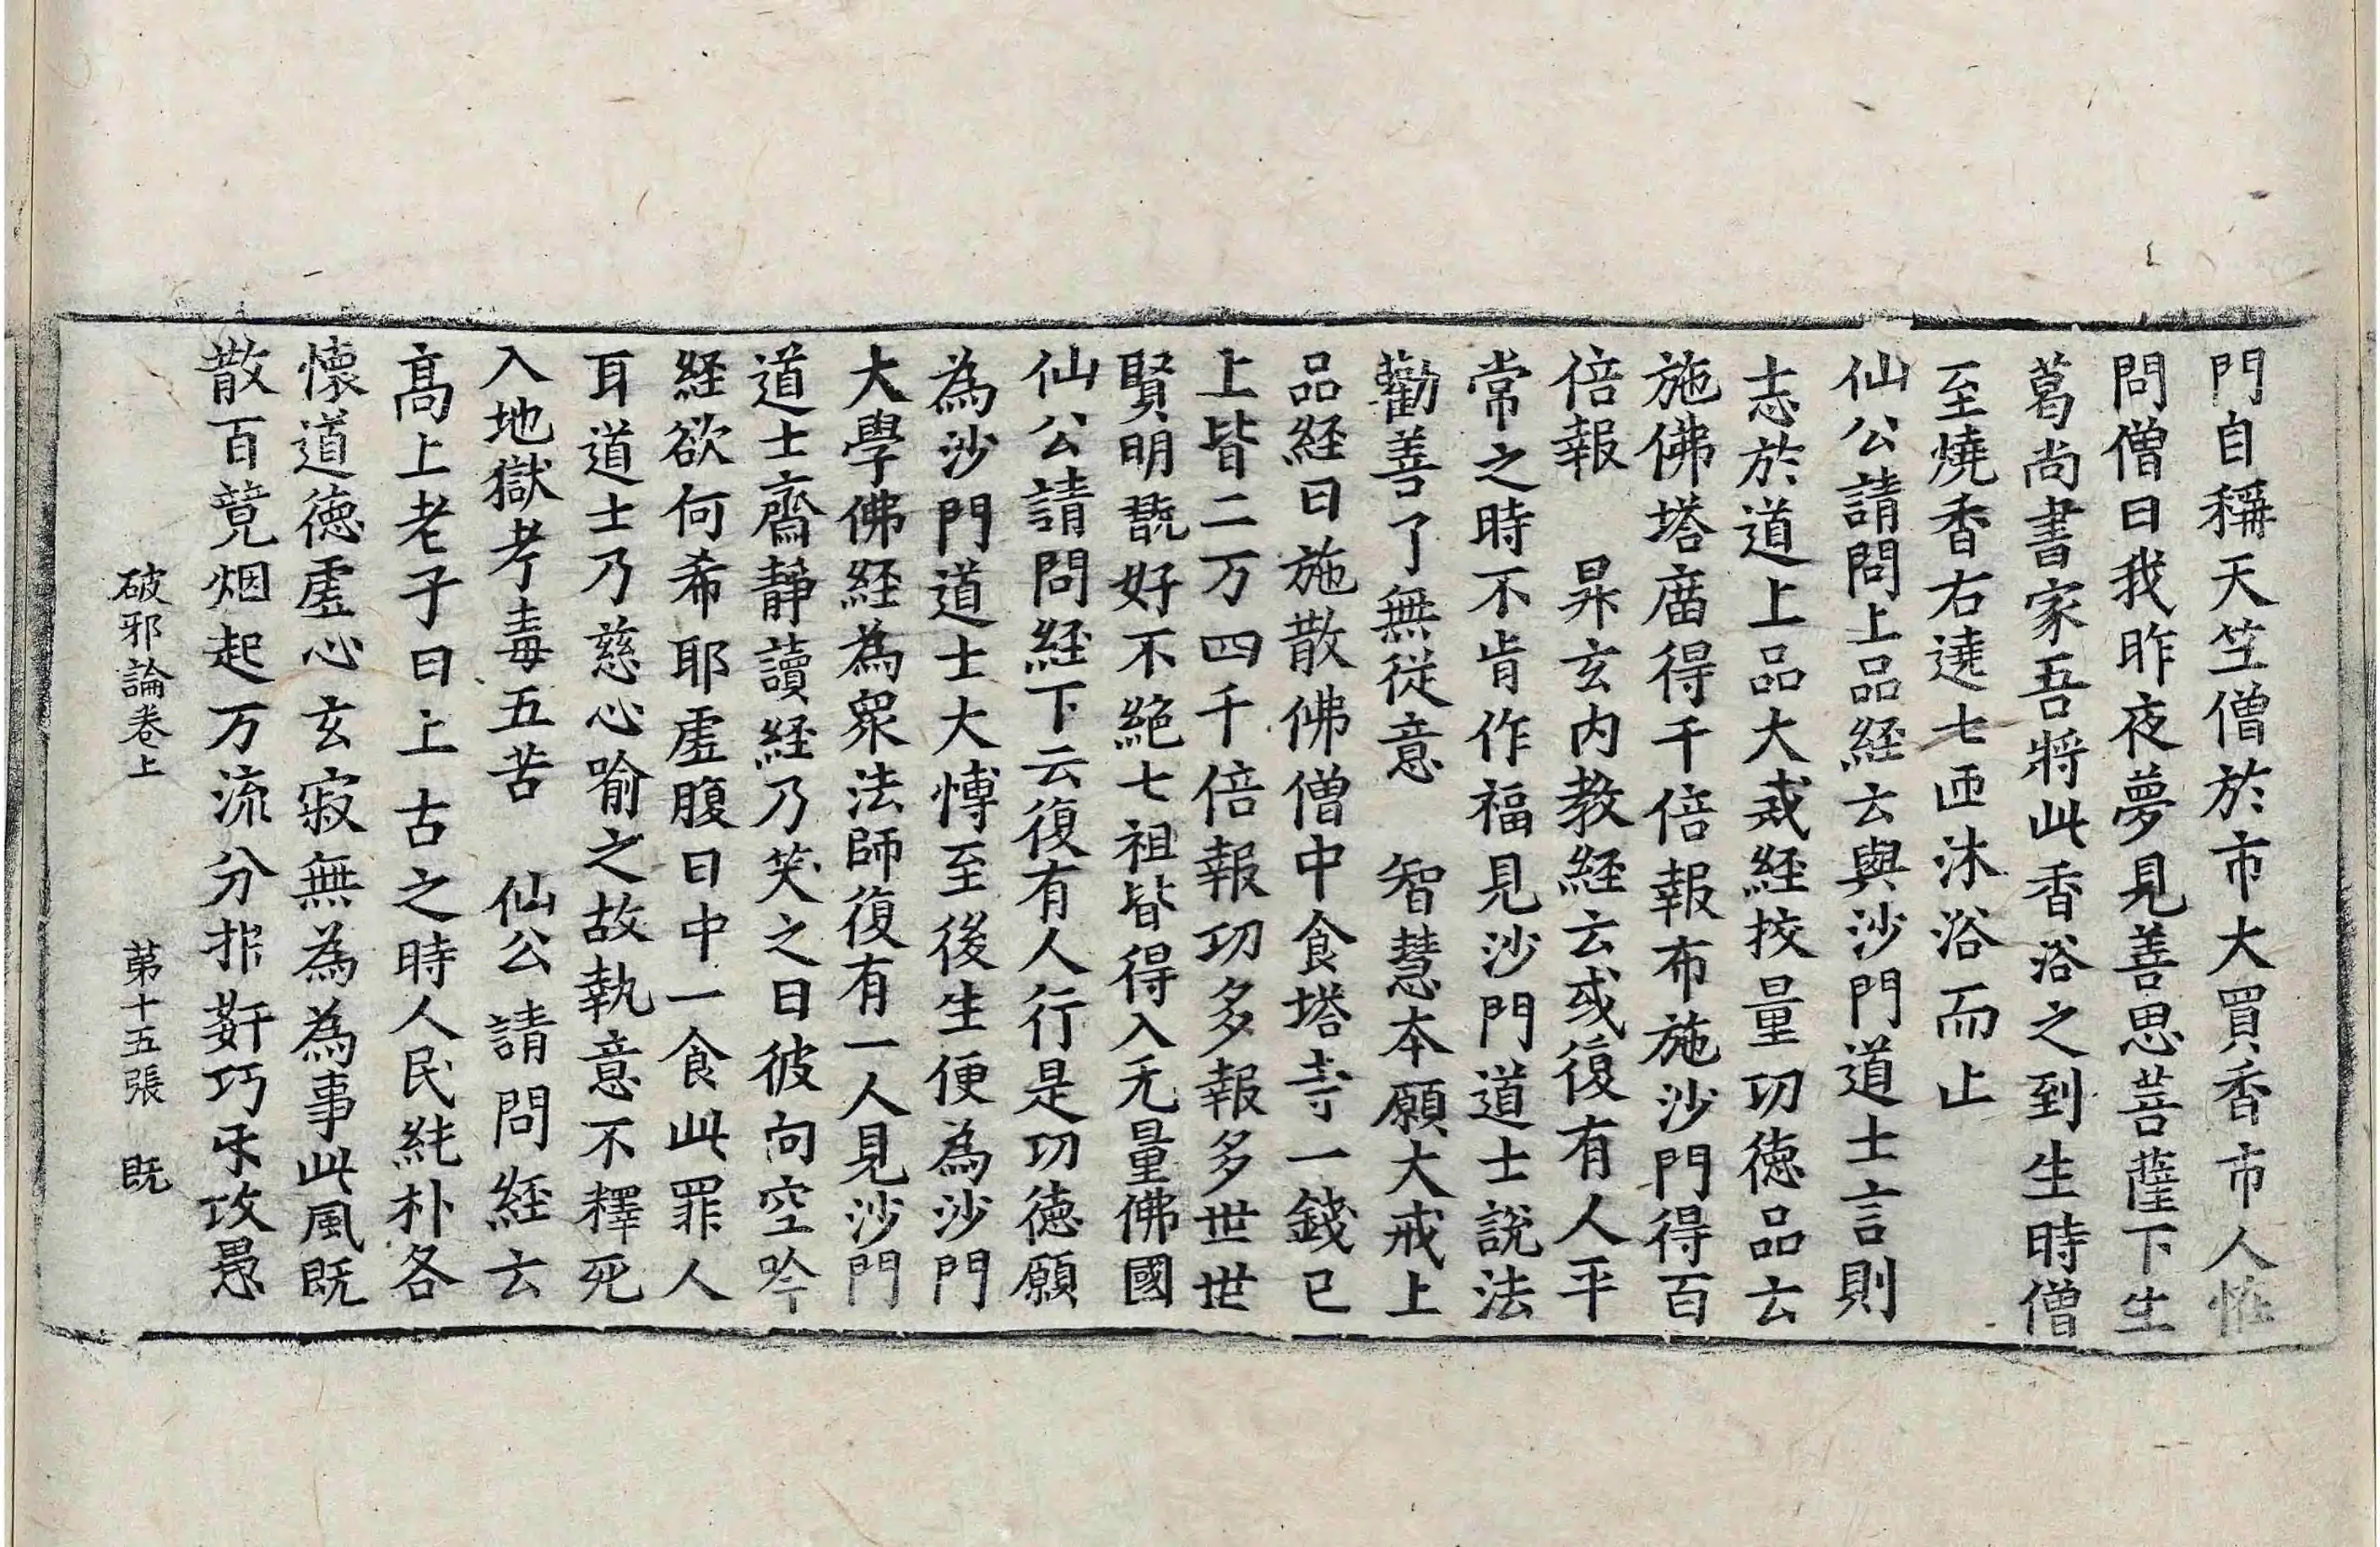 門自稱天竺僧於市大買香市人恠
問僧曰我昨夜夢見善思菩薩下生
葛尚書家吾將此香浴之到生時僧
至燒香右遶七匝沐浴而止
仙公請問上品経云與沙門道士言則
志於道上品大戒経挍量功徳品云
施佛塔庿得千倍報布施沙門得百
倍報　昇玄内教経云或復有人平
常之時不肯作福見沙門道士說法
勸善了無從意　智慧本願大戒上
品経曰施散佛僧中食塔寺一錢已
上皆二万四千倍報功多報多世世
賢明翫好不絶七祖皆得入无量佛國
仙公請問経下云復有人行是功徳願
為沙門道士大愽至後生便為沙門
大學佛経為衆法師復有一人見沙門
道士齋静讀経乃笑之曰彼向空吟
経欲何希耶虗腹日中一食此罪人
耳道士乃慈心喻之故執意不釋死
入地獄考毒五苦　仙公請問経云
髙上老子曰上古之時人民純朴各
懐道徳虗心玄寂無為為事此風既
散百竟烟起万流分折姧巧㸦攻愚
破邪論卷上　第十五張　既